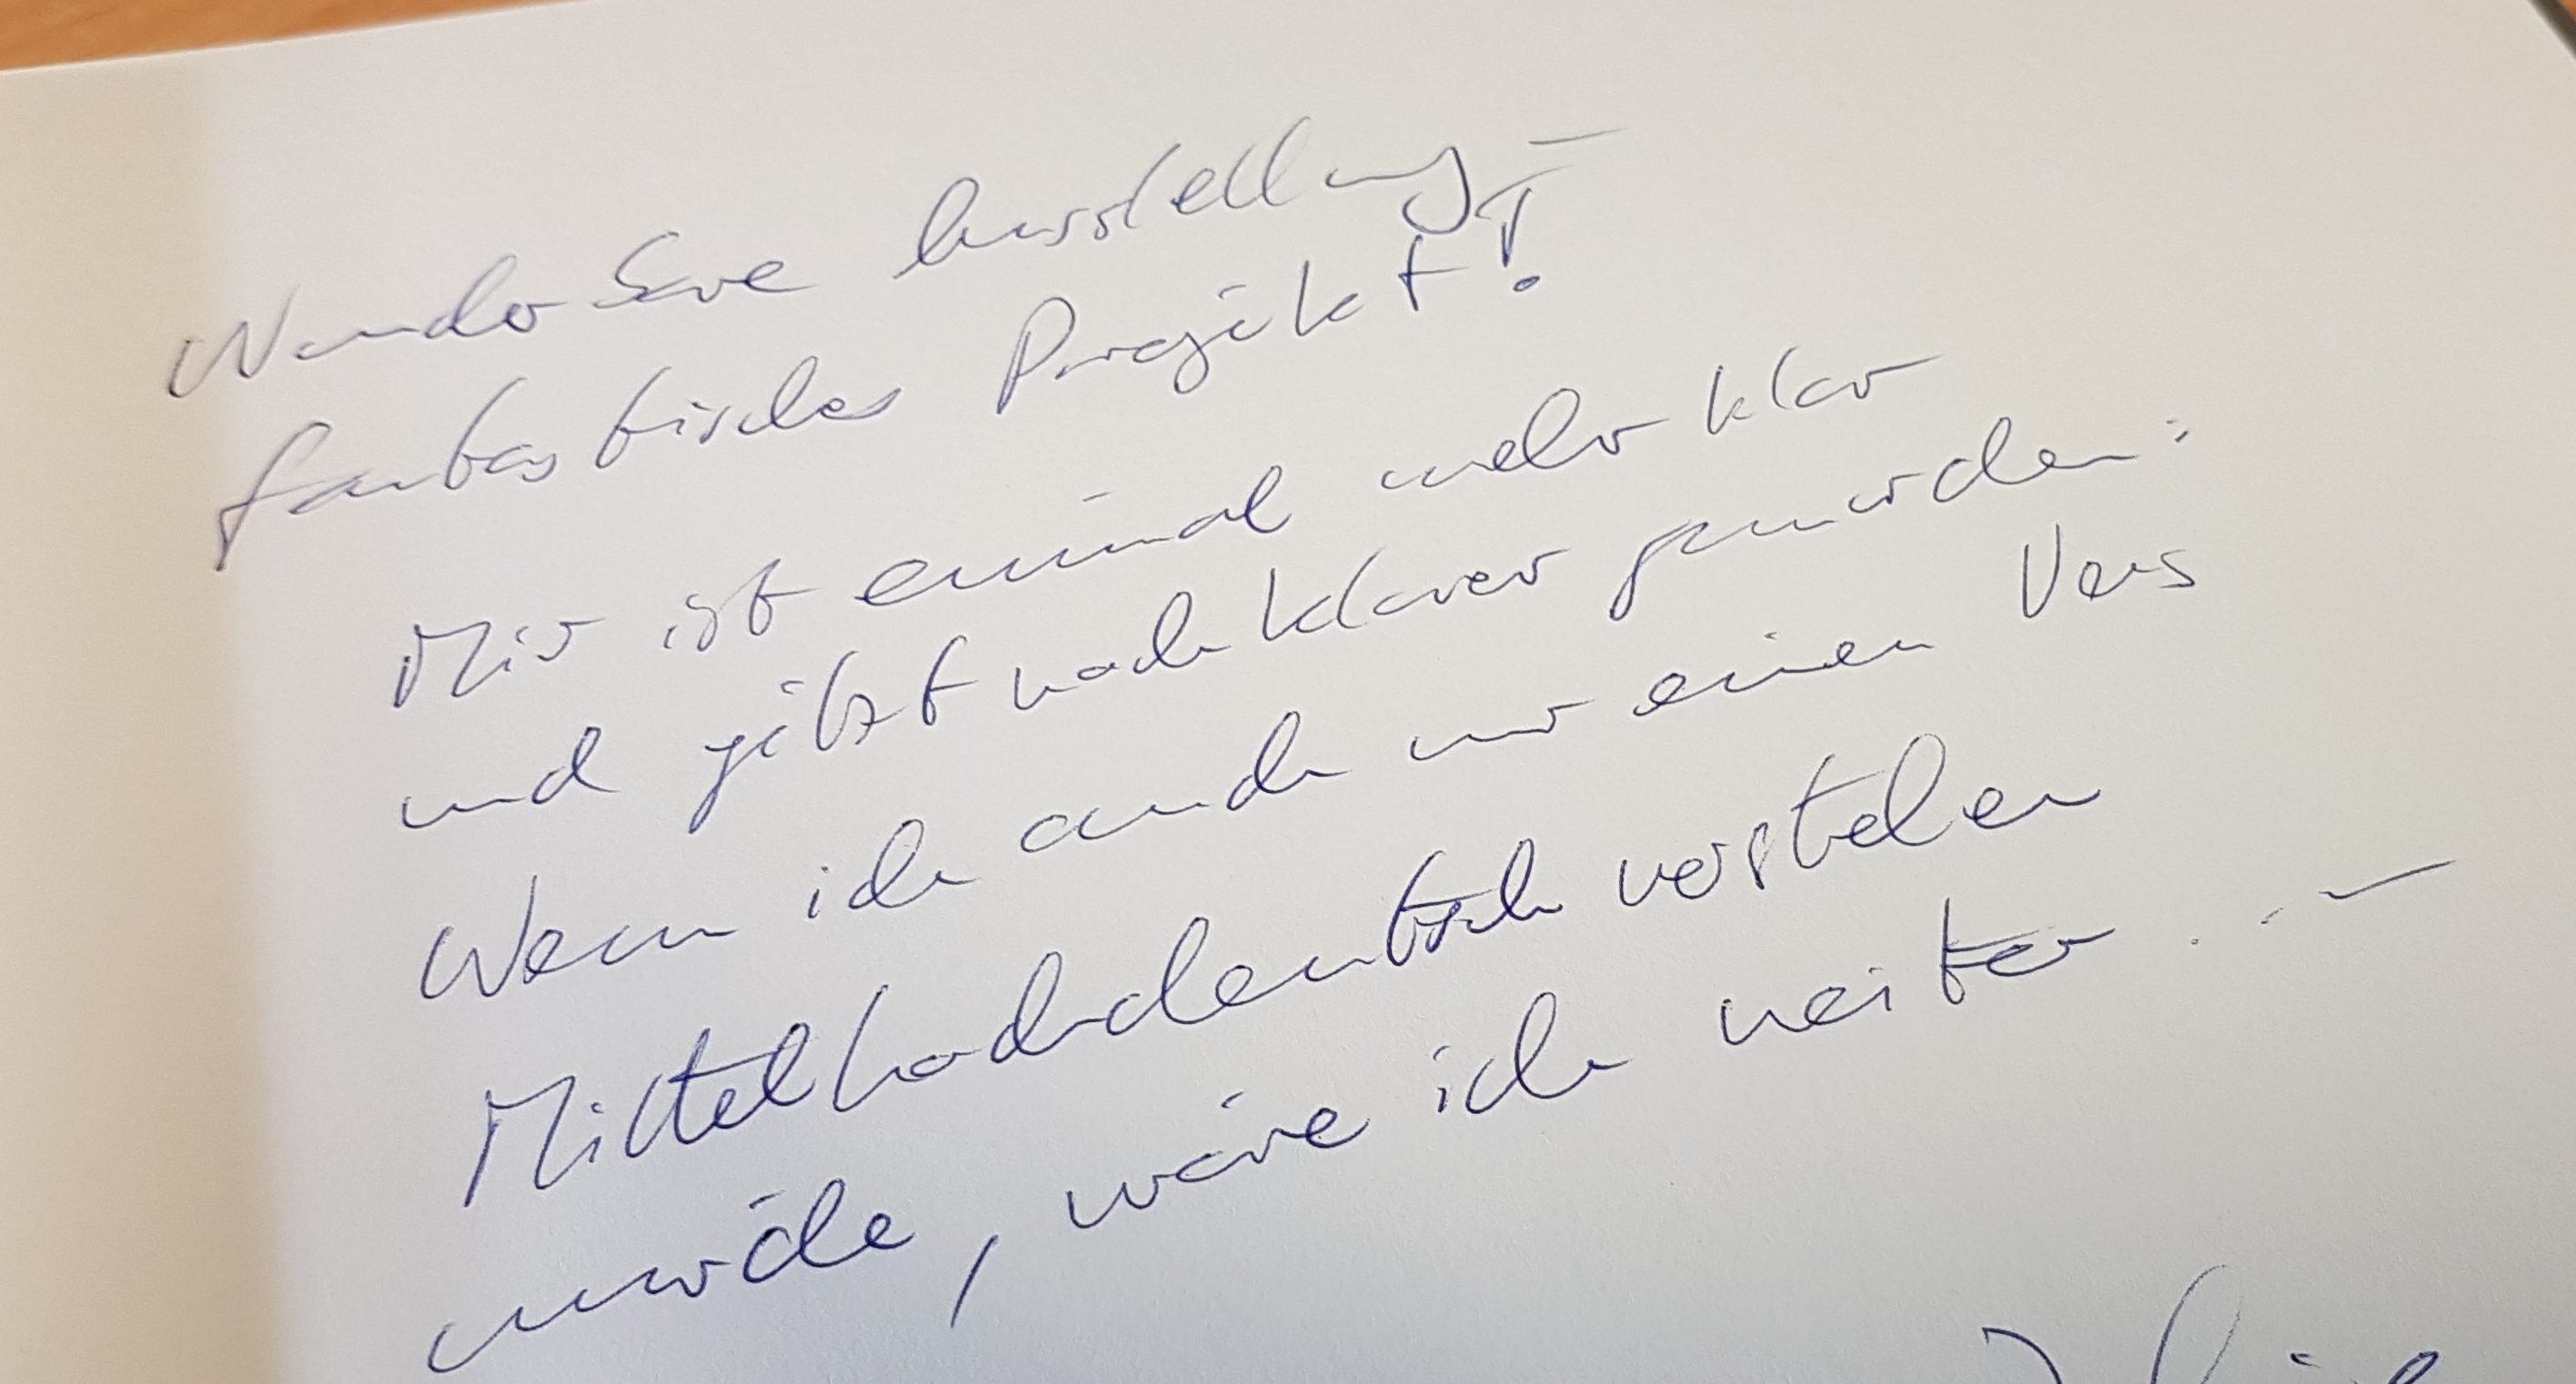 Wunderbare Ausstellung –
fantastisches Projekt!
Mir ist einmal mehr klar
und jetzt noch klarer geworden:
Wenn ich auch nur einen Vers
Mittelhochdeutsch verstehen
würde, wäre ich weiter . . –